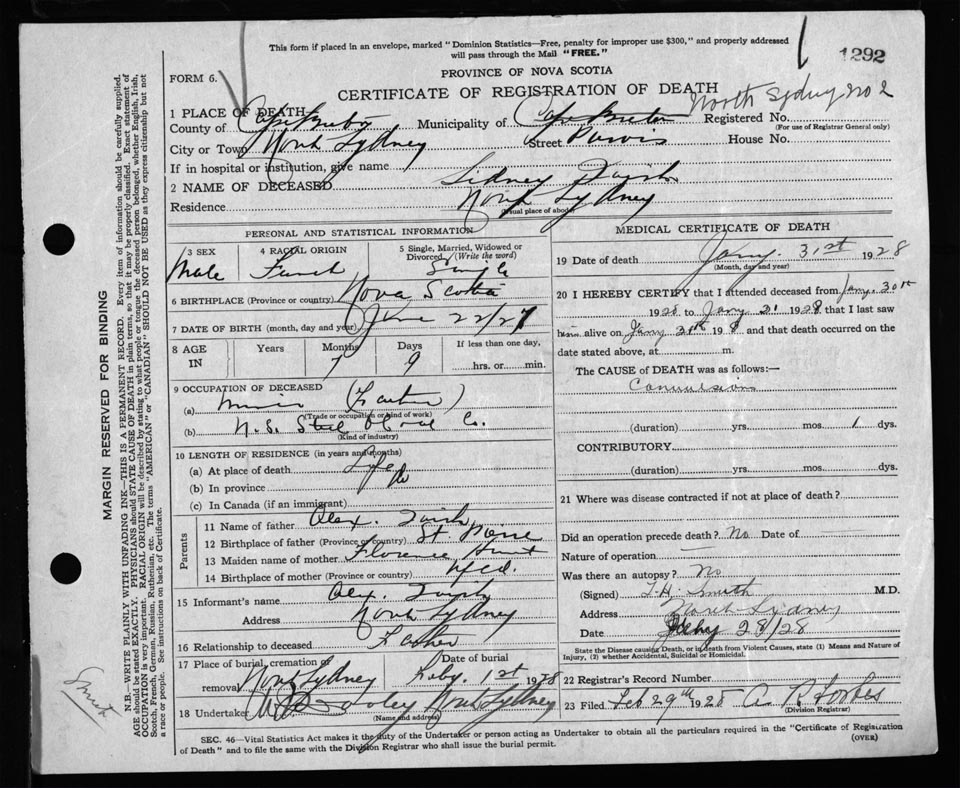 This form if placed in an envelope, marked "Dominion Statistics—Free, penalty for improper use $300," and properly addressed
will pass through the Mail "FREE."
1292
FORM 6.
PROVINCE OF NOVA SCOTIA
CERTIFICATE OF REGISTRATION OF DEATH
North Sydney No 2
1 PLACE OF DEATH
County of Cape Breton Municipality of Cape Breton Registered No.
(For use of Registrar General only)
City or Town North Sydney Street Purvis House No.
If in hospital or institution, give name
2 NAME OF DECEASED Sidney
Residence North Sydney
(Usual place of abode)
PERSONAL AND STATISTICAL INFORMATION
3 SEX Male
4 RACIAL ORIGIN French
5 Single, Married, Widowed or
Divorced (Write the word)
Single
6 BIRTHPLACE (Province or country) Nova Scotia
7 DATE OF BIRTH (month, day and year) June 22/27
8 AGE IN
Years Months Days If less than one day,
7 9 hrs. or min.
9 OCCUPATION OF DECEASED
(a) Miner (Father)
(Trade or occupation or kind of work)
(b) N.S. Steel & Coal Co.
(Kind of industry)
10 LENGTH OF RESIDENCE (in years and months)
(a) At place of death Life
(b) In province Do
(c) In Canada (if an immigrant)
Parents
11 Name of father Alex.
12 Birthplace of father (Province or country) St. Pierre
13 Maiden name of mother Florence Hunt
14 Birthplace of mother (Province or country) Nfld.
15 Informant's name Alex.
Address North Sydney
16 Relationship to deceased Father
17 Place of burial, cremation or Date of burial
removal North Sydney Feby. 1st 1928
18 Undertaker North Sydney
(Name and address)
MEDICAL CERTIFICATE OF DEATH
19 Date of death Jany. 31st 1928
(Month, day and year)
20 I HEREBY CERTIFY that I attended deceased from Jany. 30th
1928 to Jany 31 1928 that I last saw
him alive on Jany 30th 198 and that death occurred on the
date stated above, at m.
The CAUSE of DEATH was as follows:—
Convulsions
(duration) yrs. mos. 1 dys.
CONTRIBUTORY
(duration) yrs. mos. dys.
21 Where was disease contracted if not at place of death?
Did an operation precede death? No Date of
Nature of operation —
Was there an autopsy? No
(Signed) Smith M.D.
Address North Sydney
Date 28/28
State the Disease causing Death, or in death from Violent Causes, state (1) Means and Nature of
Injury, (2) whether Accidental, Suicidal or Homicidal.
22 Registrar's Record Number
23 Filed Feb 29th 1928 A. R. Forbes
(Division Registrar)
SEC. 46—Vital Statistics Act makes it the duty of the Undertaker or person acting as Undertaker to obtain all the particulars required in the "Certificate of Registration
of Death" and to file the same with the Division Registrar who shall issue the burial permit.
(OVER)
MARGIN RESERVED FOR BINDING
N.B.—WRITE PLAINLY WITH UNFADING INK—THIS IS A PERMANENT RECORD. Every item of information should be carefully supplied.
AGE should be stated EXACTLY. PHYSICIANS should STATE CAUSE OF DEATH in plain terms, so that it may be properly classified. Exact statement of
OCCUPATION is very important. RACIAL ORIGIN will be described by stating to what people or tongue the deceased person belonged, whether English, Irish,
Scotch, French, German, Russian, Ruthenian, etc. The terms "AMERICAN" or "CANADIAN" SHOULD NOT BE USED as they express citizenship but not
a race or people. See instructions on back of Certificate.
Smith